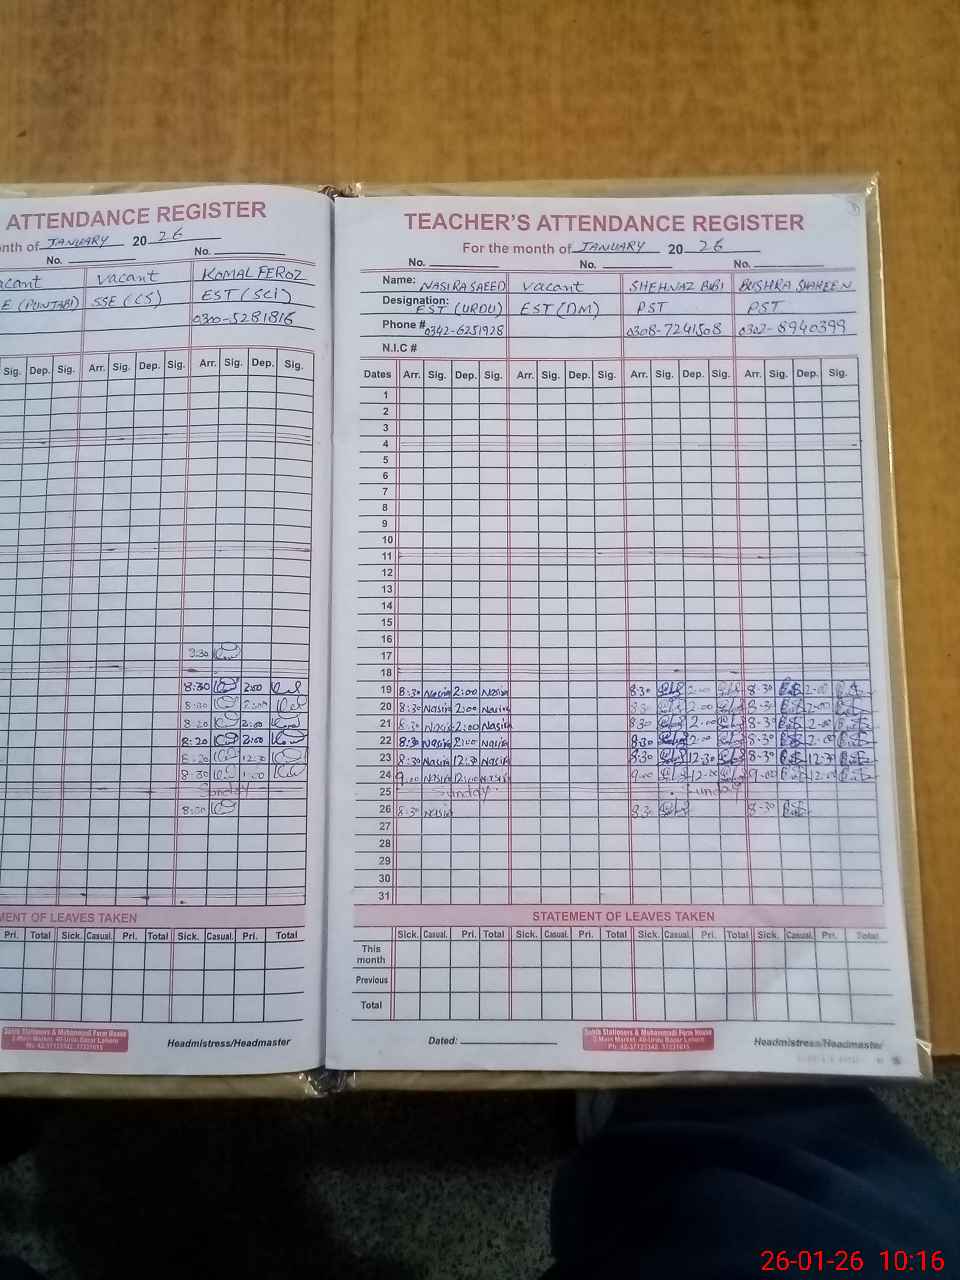 ATTENDANCE REGISTER
nth of JANUARY 20 26
No. No.
acant Vacant KOMAL FEROZ
E (PUNJABI) SSE (CS) EST (SCI)
0300-5281816
Sig. Dep. Sig. Arr. Sig. Dep. Sig. Arr. Sig. Dep. Sig.
8:30 2:00
8:30 2:00
8:20 2:00
8:20 2:00
8:20 12:30
8:30 1:00
Sunday
8:30
MENT OF LEAVES TAKEN
Pri. Total Sick. Casual. Pri. Total Sick. Casual. Pri. Total
Sahib Stationers & Muhammadi Form House
2.Main Market, 40-Urdu Bazar Lahore
Headmistress/Headmaster
TEACHER'S ATTENDANCE REGISTER
For the month of JANUARY 20 26
No. No. No.
Name: NASIRA SAEED Vacant SHEHNAZ BIBI BUSHRA SHAHEEN
Designation: EST (URDU) EST (DM) PST PST
Phone # 0342-6251928 0308-7241508 0302-8940399
N.I.C #
Dates Arr. Sig. Dep. Sig. Arr. Sig. Dep. Sig. Arr. Sig. Dep. Sig. Arr. Sig. Dep. Sig.
1
2
3
4
5
6
7
8
9
10
11
12
13
14
15
16
17
18
19 8:30 Nasira 2:00 Nasira 8:30 2:00 8-30 2-00
20 8:30 Nasira 2:00 Nasira 8:30 2:00 8-30 2-00
21 8:30 Nasira 2:00 Nasira 8:30 2:00 8-30 2-00
22 8:30 Nasira 2:00 Nasira 8:30 2:00 8-30 2-00
23 8:30 Nasira 12:30 Nasira 8:30 12:30 8-30 12-30
24 9:00 Nasira 12:00 Nasira 9:00 12:00 9-00 12-00
25 Sunday Sunday
26 8:30 Nasira 8:30 8-30
27
28
29
30
31
STATEMENT OF LEAVES TAKEN
Sick. Casual. Pri. Total Sick. Casual. Pri. Total Sick. Casual. Pri. Total Sick. Casual. Pri. Total
This month
Previous
Total
Dated:
Sahib Stationers & Muhammadi Form House
2.Main Market, 40-Urdu Bazar Lahore
Headmistress/Headmaster
26-01-26 10:16